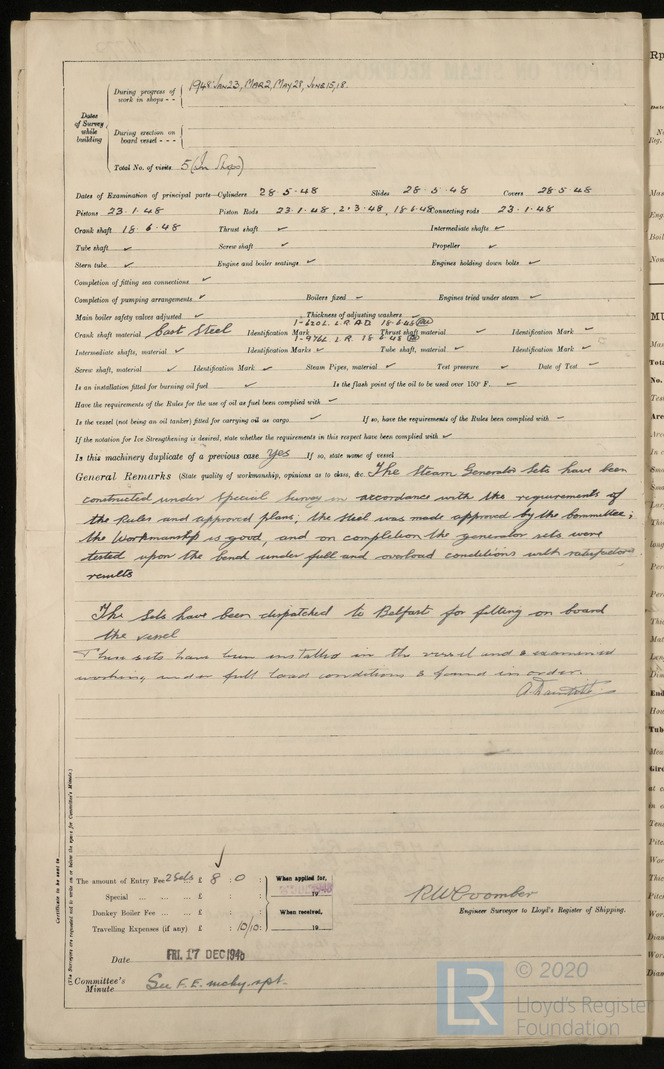 During progress of work in shops - - 1948 Jan 23, Mar 2, May 28, June 15, 18.
Dates of Survey while building
During erection on board vessel - - -
Total No. of visits 5 (In Shops)
Dates of Examination of principal parts—Cylinders 28·5·48 Slides 28·5·48 Covers 28·5·48
Pistons 23·1·48 Piston Rods 23·1·48, 2·3·48, 18·6·48 Connecting rods 23·1·48
Crank shaft 18·6·48 Thrust shaft ✓ Intermediate shafts ✓
Tube shaft ✓ Screw shaft ✓ Propeller ✓
Stern tube ✓ Engine and boiler seatings ✓ Engines holding down bolts ✓
Completion of fitting sea connections ✓
Completion of pumping arrangements ✓ Boilers fixed ✓ Engines tried under steam ✓
Main boiler safety valves adjusted ✓ Thickness of adjusting washers ✓
1-620L. L.R. A.D. 18-6-48
Crank shaft material Cast Steel Identification Mark 1-976L L.R. 18·6·48 Thrust shaft material ✓ Identification Mark ✓
Intermediate shafts, material ✓ Identification Marks ✓ Tube shaft, material ✓ Identification Mark ✓
Screw shaft, material ✓ Identification Mark ✓ Steam Pipes, material ✓ Test pressure ✓ Date of Test ✓
Is an installation fitted for burning oil fuel ✓ Is the flash point of the oil to be used over 150° F. ✓
Have the requirements of the Rules for the use of oil as fuel been complied with ✓
Is the vessel (not being an oil tanker) fitted for carrying oil as cargo ✓ If so, have the requirements of the Rules been complied with ✓
If the notation for Ice Strengthening is desired, state whether the requirements in this respect have been complied with ✓
Is this machinery duplicate of a previous case Yes If so, state name of vessel
General Remarks (State quality of workmanship, opinions as to class, &c. The Steam Generator Sets have been
constructed under Special Survey in accordance with the requirements of
the Rules and approved plans; the steel was made approved by the Committee;
the Workmanship is good, and on completion the generator sets were
tested upon the bench under full and overload conditions with satisfactory
results
The Sets have been dispatched to Belfast for fitting on board
the vessel
These sets have been installed in the vessel and examined
working under full load conditions & found in order.
Certificate to be sent to
(The Surveyors are requested not to write on or below the space for Committee's Minute.)
The amount of Entry Fee 2 Sets £ 8 : 0 : When applied for,
Special ... £ : : 19
Donkey Boiler Fee ... £ : : When received,
Travelling Expenses (if any) £ : 10/10 : 19
RW Coomber
Engineer Surveyor to Lloyd's Register of Shipping.
Date FRI. 17 DEC 1948
Committee's Minute See F.E. mchy. rpt.
LR © 2020
Lloyd's Register
Foundation